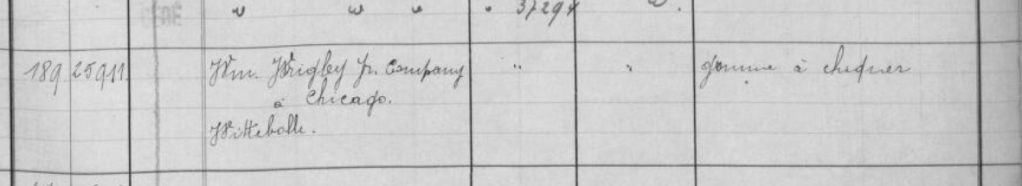 " " " " 37294 " .
189 25911. Wm. Wrigley Jr. Company " " gomme à chiquer
à Chicago.
Wittebolle.